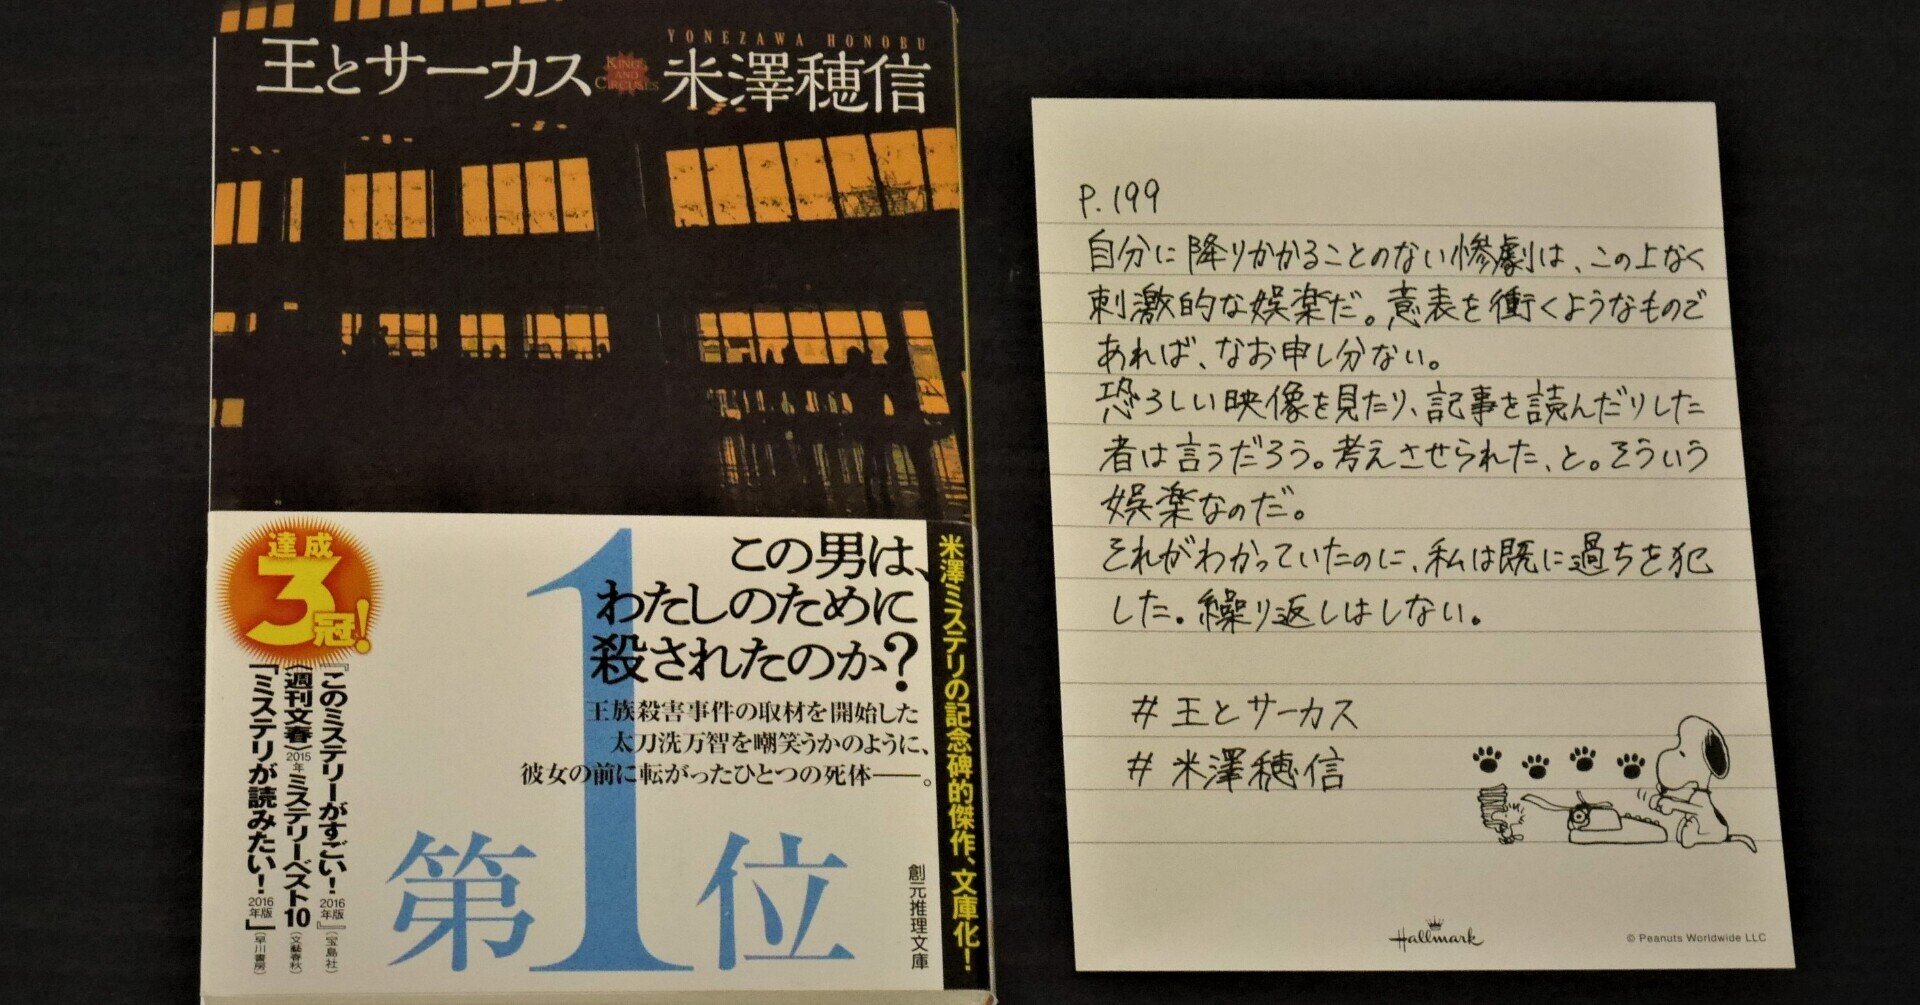 YONEZAWA HONOBU
王とサーカス
KINGS
AND
CIRCUSES
米澤穂信
達成
3
冠!
この男は、
わたしのために
殺されたのか?
王族殺害事件の取材を開始した
太刀洗万智を嘲笑うかのように、
彼女の前に転がったひとつの死体──。
第1位
『このミステリーがすごい!2016年版』(宝島社)
〈週刊文春〉2015年ミステリーベスト10(文藝春秋)
「ミステリが読みたい!2016年版」(早川書房)
米澤ミステリの記念碑的傑作、文庫化!
創元推理文庫
P.199
自分に降りかかることのない惨劇は、この上なく
刺激的な娯楽だ。意表を衝くようなもので
あれば、なお申し分ない。
恐ろしい映像を見たり、記事を読んだりした
者は言うだろう。考えさせられた、と。そういう
娯楽なのだ。
それがわかっていたのに、私は既に過ちを犯
した。繰り返しはしない。
#王とサーカス
#米澤穂信
Hallmark
© Peanuts Worldwide LLC